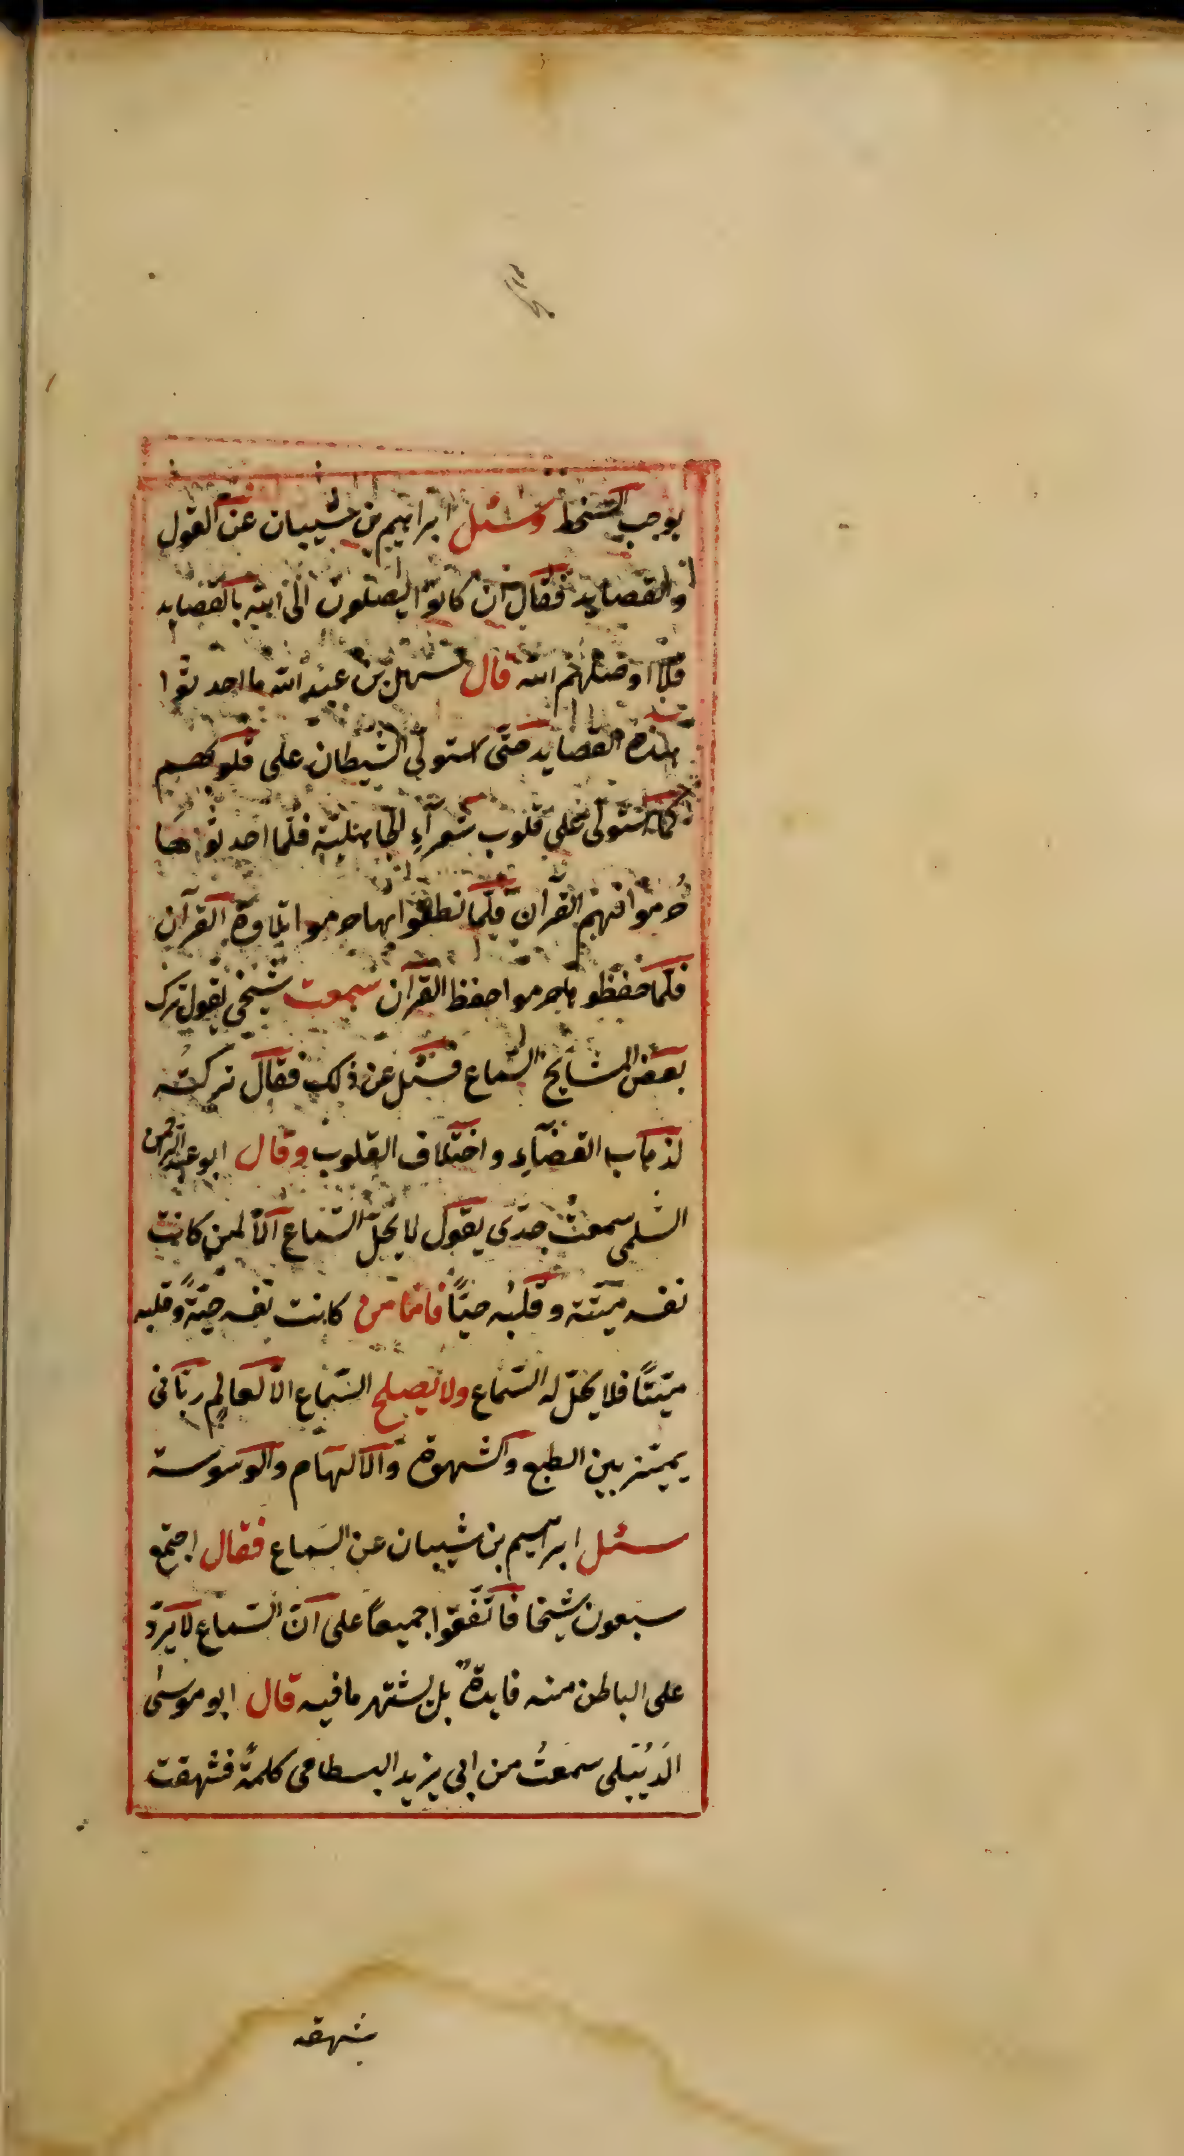 يوجب السخط وسئل ابراهيم بن شيبان عن القول
والقصايد فقال ان كانوا ليصلون الى الله بالقصايد
فلا اوصلهم الله قال سهل بن عبد الله ما احدثوا
هذه القصايد حتى استولى الشيطان على قلوبهم
كما استولى على قلوب شعرآء الجاهلية فلما احدثوها
حُرموا فهم القرآن فلما نطقوا بها حرموا تلاوة القرآن
فلما حفظوها حرموا حفظ القرآن سمعت شيخي يقول ترك
بعض المشايخ السماع فسئل عن ذلك فقال تركته
لذهاب القضآء واختلاف القلوب وقال ابو عبد الرحمن
السُلمى سمعتُ جدّى يقول لا يحلّ السّماع الّا لمن كانت
نفسه ميّتة وقلبُه حيّاً فامّا من كانت نفسه حيّةً وقلبه
ميّتاً فلا يحلّ له السّماع ولا يصلح السّماع الّا لعالم ربّانى
يميّز بين الطبع والشهوة والالهام والوسوسة
سئل ابراهيم بن شيبان عن السماع فقال اجتمع
سبعون شيخا فاتّفقوا جميعاً على انّ السّماع لا يردّ
على الباطن منه فايدةٌ بل يشتهر ما فيه قال ابو موسٰى
الدَيُبَلى سمعتُ من ابى يزيد البسطامى كلمةً فشهقت
شهقه